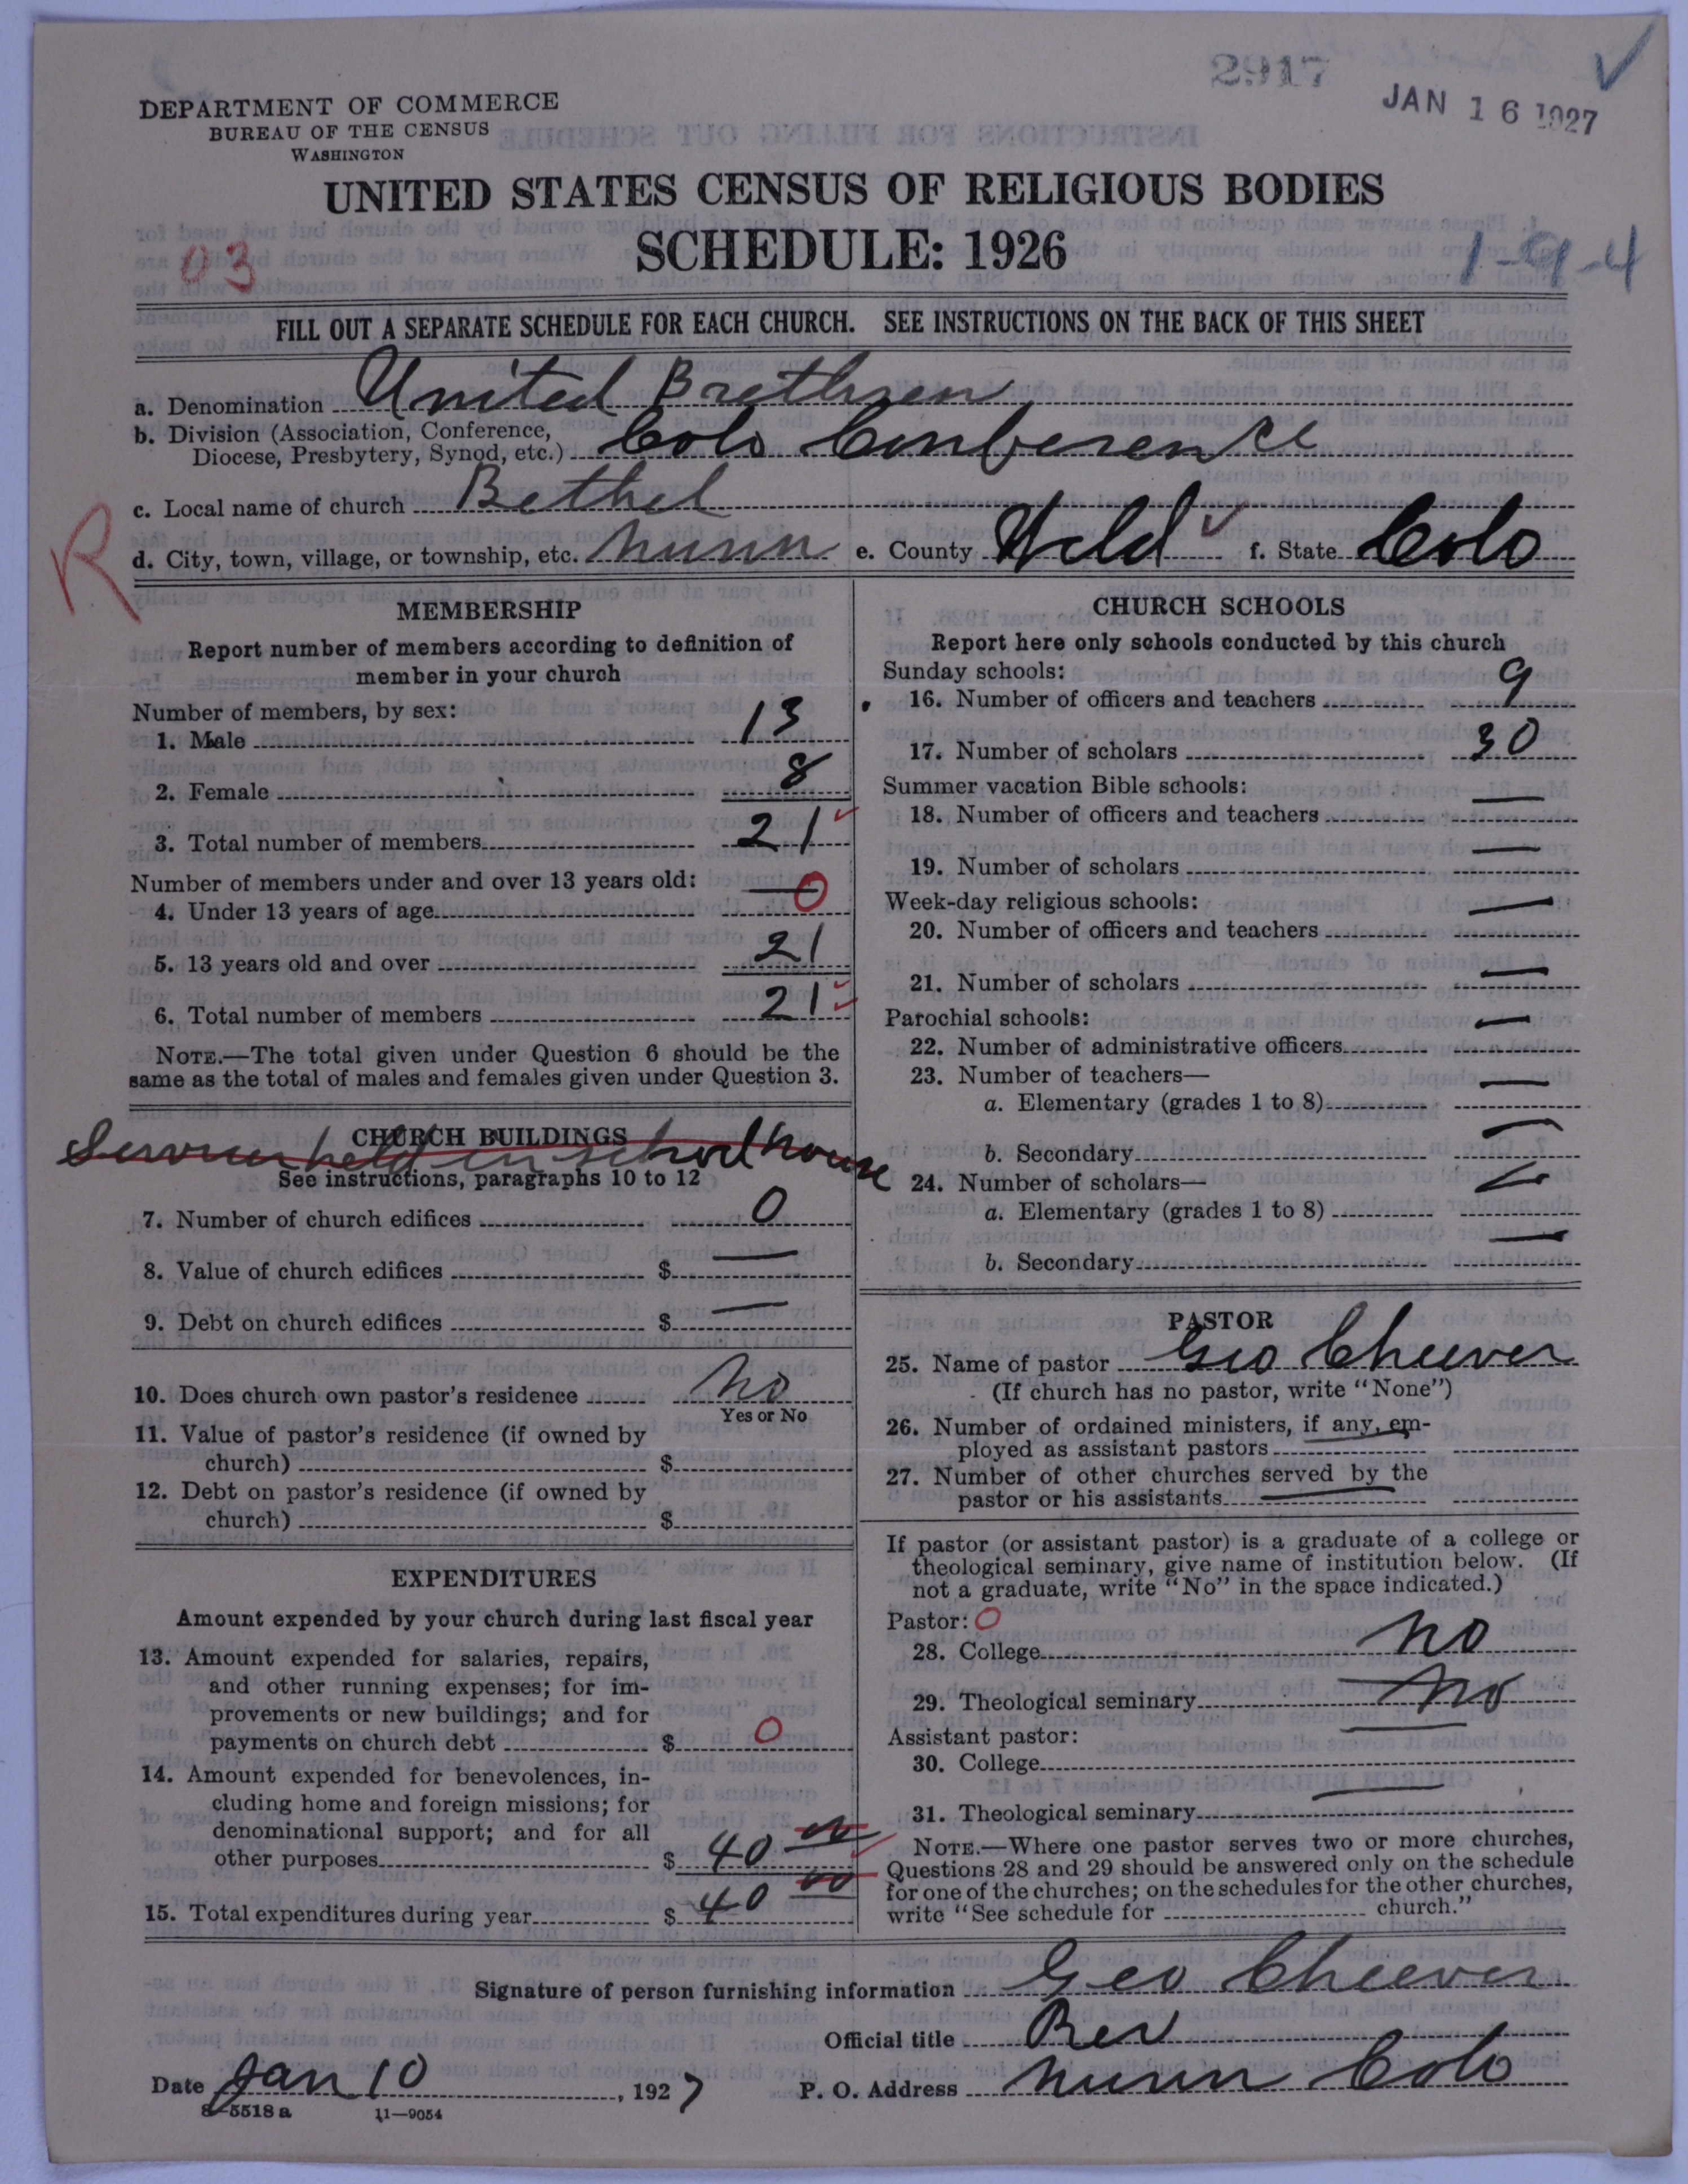 2917
JAN 16 1927
DEPARTMENT OF COMMERCE
BUREAU OF THE CENSUS
WASHINGTON
UNITED STATES CENSUS OF RELIGIOUS BODIES
SCHEDULE: 1926
03
1-9-4
FILL OUT A SEPARATE SCHEDULE FOR EACH CHURCH. SEE INSTRUCTIONS ON THE BACK OF THIS SHEET
a. Denomination United Brethren
b. Division (Association, Conference, Diocese, Presbytery, Synod, etc.) Colo Conference
c. Local name of church Bethel
R
d. City, town, village, or township, etc. Nunn e. County Weld f. State Colo
MEMBERSHIP
Report number of members according to definition of
member in your church
Number of members, by sex:
1. Male 13
2. Female 8
3. Total number of members 21
Number of members under and over 13 years old:
4. Under 13 years of age — 0
5. 13 years old and over 21
6. Total number of members 21
NOTE.—The total given under Question 6 should be the
same as the total of males and females given under Question 3.
CHURCH BUILDINGS
Services held in school house
See instructions, paragraphs 10 to 12
7. Number of church edifices 0
8. Value of church edifices $ —
9. Debt on church edifices $ —
10. Does church own pastor's residence No
Yes or No
11. Value of pastor's residence (if owned by
church) $
12. Debt on pastor's residence (if owned by
church) $
EXPENDITURES
Amount expended by your church during last fiscal year
13. Amount expended for salaries, repairs,
and other running expenses; for im-
provements or new buildings; and for
payments on church debt $ 0
14. Amount expended for benevolences, in-
cluding home and foreign missions; for
denominational support; and for all
other purposes $ 40 00
15. Total expenditures during year $ 40 00
CHURCH SCHOOLS
Report here only schools conducted by this church
Sunday schools:
16. Number of officers and teachers 9
17. Number of scholars 30
Summer vacation Bible schools:
18. Number of officers and teachers —
19. Number of scholars —
Week-day religious schools:
20. Number of officers and teachers —
21. Number of scholars —
Parochial schools:
22. Number of administrative officers —
23. Number of teachers—
a. Elementary (grades 1 to 8) —
b. Secondary —
24. Number of scholars—
a. Elementary (grades 1 to 8) —
b. Secondary —
PASTOR
25. Name of pastor Geo Cheever
(If church has no pastor, write "None")
26. Number of ordained ministers, if any, em-
ployed as assistant pastors
27. Number of other churches served by the
pastor or his assistants
If pastor (or assistant pastor) is a graduate of a college or
theological seminary, give name of institution below. (If
not a graduate, write "No" in the space indicated.)
Pastor: 0
28. College No
29. Theological seminary No
Assistant pastor:
30. College —
31. Theological seminary —
NOTE.—Where one pastor serves two or more churches,
Questions 28 and 29 should be answered only on the schedule
for one of the churches; on the schedules for the other churches,
write "See schedule for church."
Signature of person furnishing information Geo Cheever
Official title Rev
Date Jan 10, 1927 P. O. Address Nunn Colo
8—5518 a 11—9054